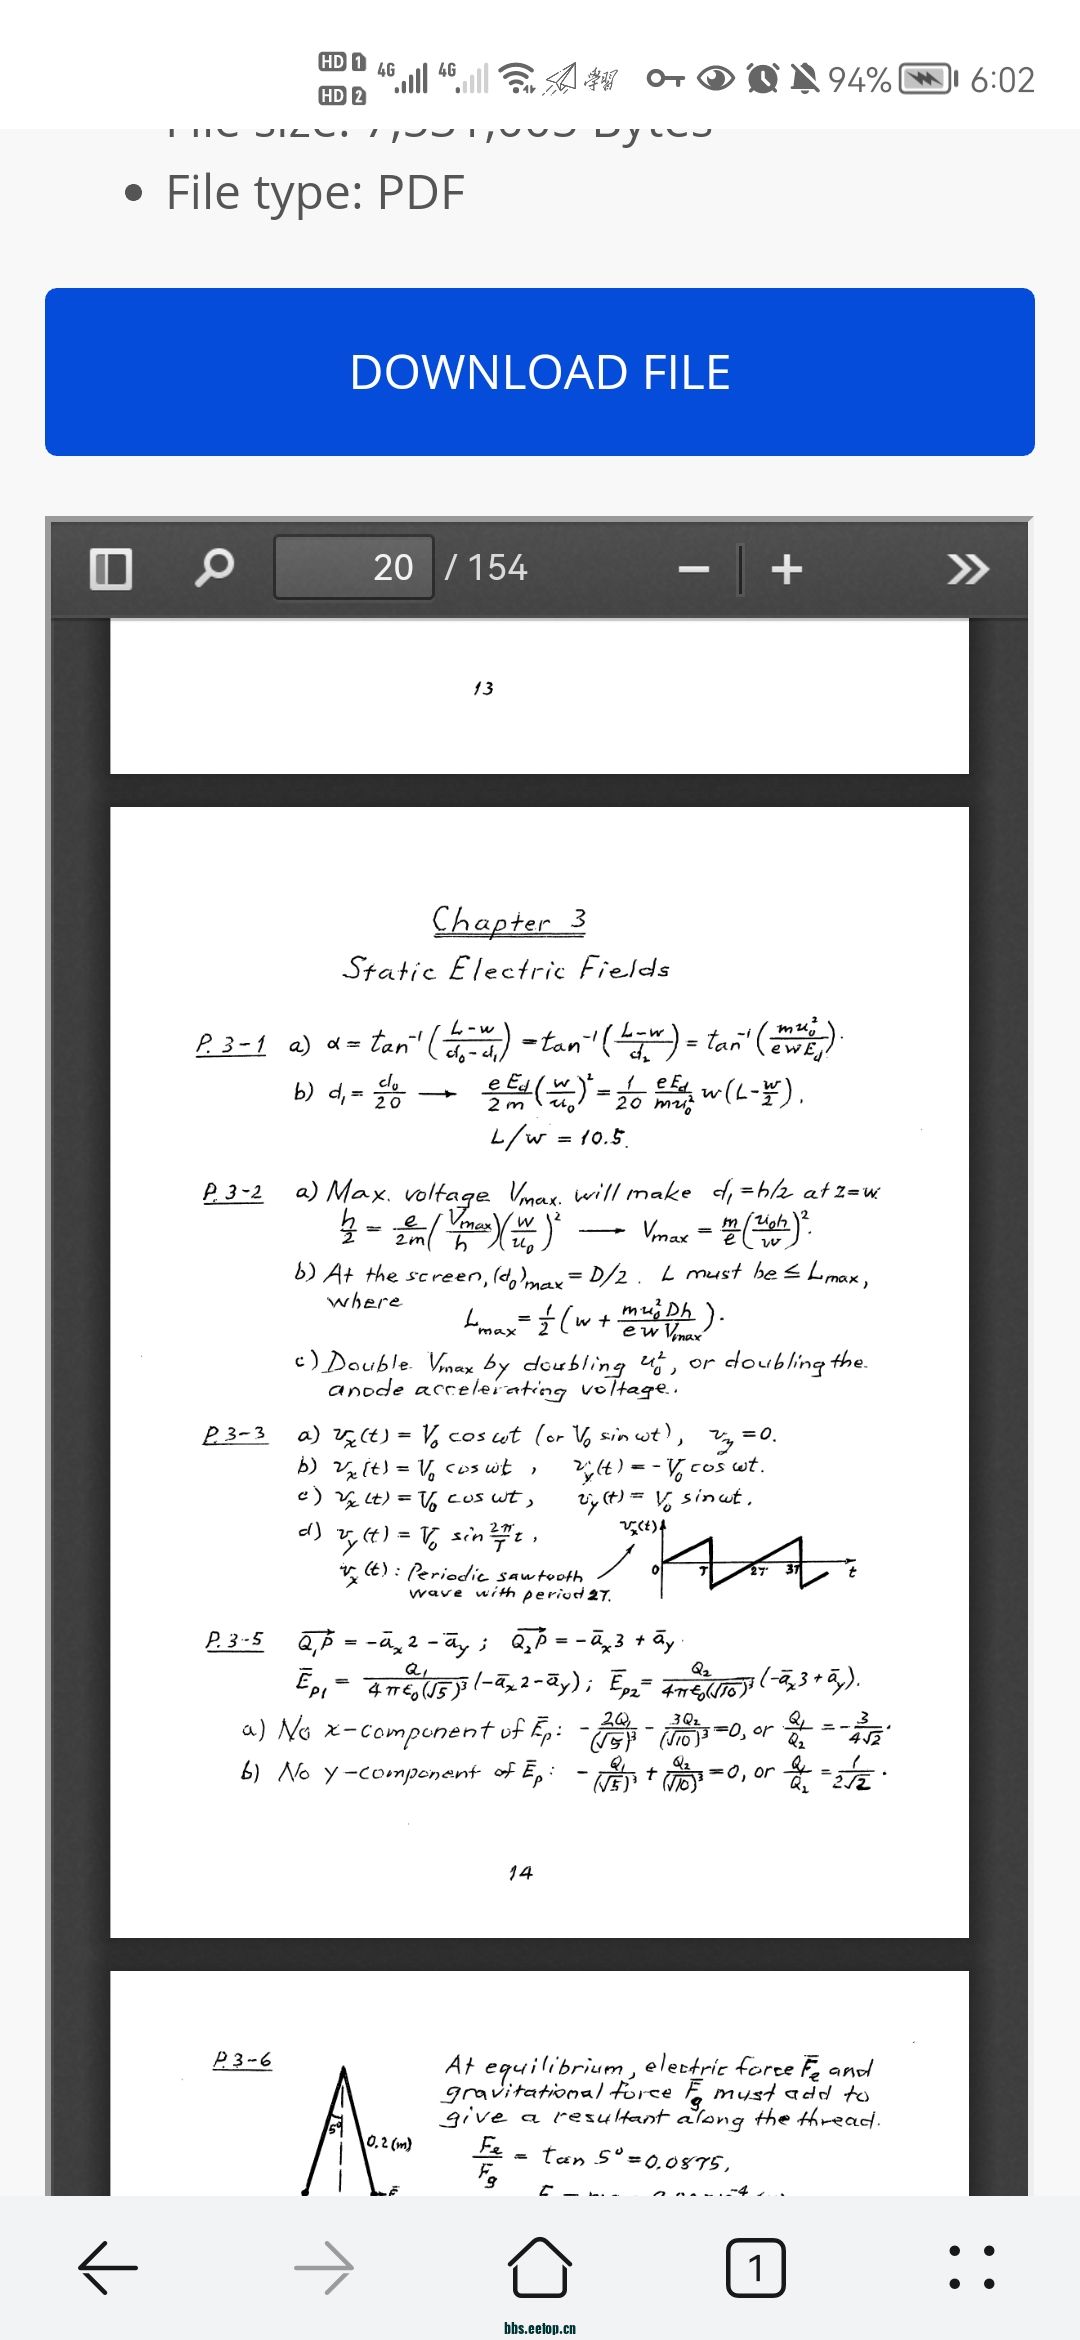 HD 1 4G 4G 学习 94% 6:02
HD 2
File type: PDF
DOWNLOAD FILE
20 / 154
13
Chapter 3
Static Electric Fields
P. 3-1 a) α = tan⁻¹((L-w)/(d₀-d₁)) = tan⁻¹((L-w)/d₂) = tan⁻¹(mu₀²/(ewE_d)).
b) d₁ = d₀/20 → eE_d/2m (w/u₀)² = 1/20 eE_d/mu₀² w(L-w/2),
L/w = 10.5.
P. 3-2 a) Max. voltage Vmax. will make d₁ = h/2 at z=w.
h/2 = e/2m (Vmax/h)(w/u₀)² → Vmax = m/e (u₀h/w)².
b) At the screen, (d₀)max = D/2. L must be ≤ Lmax,
where
Lmax = 1/2 (w + mu₀²Dh/(ewVmax)).
c) Double Vmax by doubling u₀², or doubling the
anode accelerating voltage.
P. 3-3 a) vₓ(t) = V₀ cos ωt (or V₀ sin ωt), v_y = 0.
b) vₓ(t) = V₀ cos ωt, v_y(t) = -V₀ cos ωt.
c) vₓ(t) = V₀ cos ωt, v_y(t) = V₀ sin ωt.
d) v_y(t) = V₀ sin 2π/T t, vₓ(t)
vₓ(t): Periodic sawtooth 0 T 2T 3T t
wave with period 2T.
P. 3-5 Q₁P = -āₓ2 - ā_y ; Q₂P = -āₓ3 + ā_y
Ē_P1 = Q₁/(4πε₀(√5)³) (-āₓ2 - ā_y); Ē_P2 = Q₂/(4πε₀(√10)³) (-āₓ3 + ā_y).
a) No x-component of Ē_P: - 2Q₁/(√5)³ - 3Q₂/(√10)³ = 0, or Q₁/Q₂ = - 3/(4√2).
b) No y-component of Ē_P: - Q₁/(√5)³ + Q₂/(√10)³ = 0, or Q₁/Q₂ = 1/(2√2).
14
P. 3-6 At equilibrium, electric force F̄e and
gravitational force F̄g must add to
give a resultant along the thread.
5° 0.2 (m) Fe/Fg = tan 5° = 0.0875,
1
bbs.eetop.cn